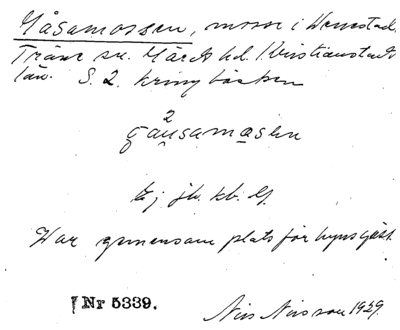 Gåsamossen, mosse i Wemstad.
Träne sn. Gärds hd. Kristianstads
län. S. 2. kring bäcken
2
gåusamasen
Ej jb. kb. Gl.
Har gemensam plats för
Nr 5339. Nils Nilsson 1929.